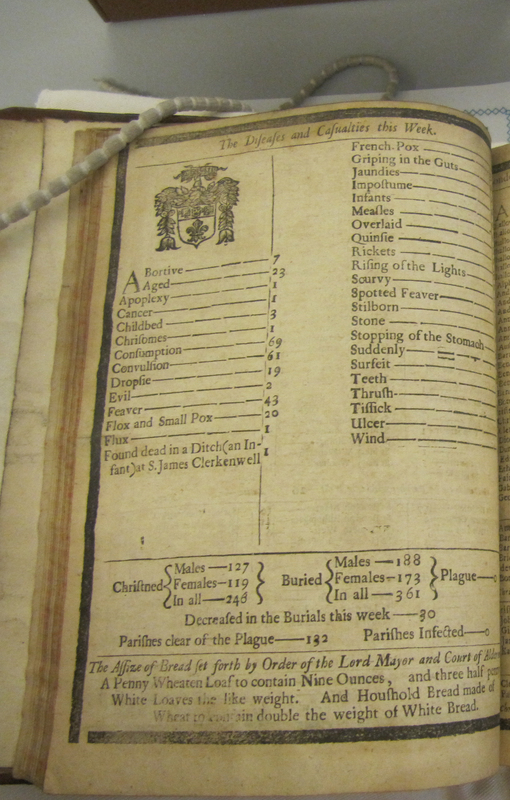 The Diseases and Casualties this Week.
ABortive — 7
Aged — 23
Apoplexy — 1
Cancer — 1
Childbed — 3
Chrisomes — 1
Consumption — 69
Convulsion — 61
Dropsie — 19
Evil — 2
Feaver — 43
Flox and Small Pox — 20
Flux — 1
Found dead in a Ditch (an In-
fant) at S. James Clerkenwell 1
French-Pox
Griping in the Guts
Jaundies
Impostume
Infants
Measles
Overlaid
Quinsie
Rickets
Rising of the Lights
Scurvy
Spotted Feaver
Stilborn
Stone
Stopping of the Stomach
Suddenly
Surfeit
Teeth
Thrush
Tissick
Ulcer
Wind
Christned { Males — 127 Females — 119 In all — 246 } Buried { Males — 188 Females — 173 In all — 361 } Plague — 0
Decreased in the Burials this week — 30
Parishes clear of the Plague — 132 Parishes Infected — 0
The Assize of Bread set forth by Order of the Lord Mayor and Court of
A Penny Wheaten Loaf to contain Nine Ounces, and three half
White Loaves the like weight. And Houshold Bread made of
Wheat to contain double the weight of White Bread.